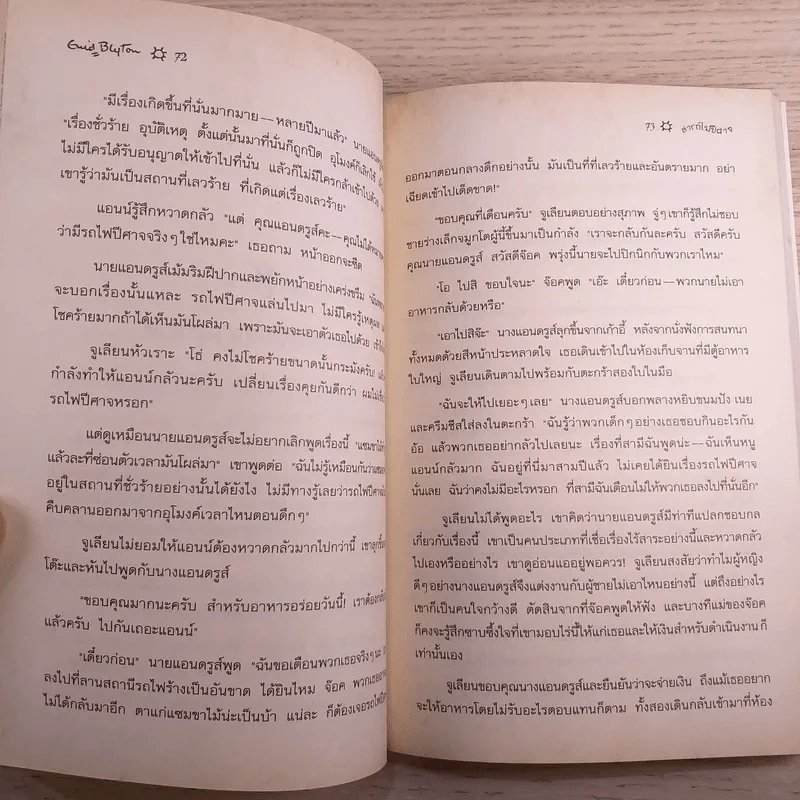 Enid Blyton 72
"มีเรื่องเกิดขึ้นที่นั่นมากมาย--หลายปีมาแล้ว" นายแอนดรู
"เรื่องชั่วร้าย อุบัติเหตุ ตั้งแต่นั้นมาที่นั่นก็ถูกปิด อุโมงค์ก็เลิกใช้
ไม่มีใครได้รับอนุญาตให้เข้าไปที่นั่น แล้วก็ไม่มีใครกล้าเข้าไปด้วย
เขารู้ว่ามันเป็นสถานที่เลวร้าย ที่เกิดแต่เรื่องเลวร้าย"
แอนน์รู้สึกหวาดกลัว "แต่ คุณแอนดรูส์คะ--คุณไม่ได้หมาย
ว่ามีรถไฟปีศาจจริงๆ ใช่ไหมคะ" เธอถาม หน้าออกจะซีด
นายแอนดรูส์เม้มริมฝีปากและพยักหน้าอย่างเคร่งขรึม
จะบอกเรื่องนั้นแหละ รถไฟปีศาจแล่นไปมา ไม่มีใครรู้เหตุผล
โชคร้ายมากถ้าได้เห็นมันโผล่มา เพราะมันจะเอาตัวเธอไปด้วย
จูเลียนหัวเราะ "โธ่ คงไม่โชคร้ายขนาดนั้นกระมังครับ!
กำลังทำให้แอนน์กลัวนะครับ เปลี่ยนเรื่องคุยกันดีกว่า ผมไม่เชื่อ
รถไฟปีศาจหรอก"
แต่ดูเหมือนนายแอนดรูส์จะไม่อยากเลิกพูดเรื่องนี้
แล้วละที่ซ่อนตัวเวลามันโผล่มา" เขาพูดต่อ "ฉันไม่รู้เหมือนกันว่า
อยู่ในสถานที่ชั่วร้ายอย่างนั้นได้ยังไง ไม่มีทางรู้เลยว่ารถไฟปีศาจ
คืบคลานออกมาจากอุโมงค์เวลาไหนตอนดึกๆ"
จูเลียนไม่ยอมให้แอนน์ต้องหวาดกลัวมากไปกว่านี้ เขาลุกขึ้น
โต๊ะและหันไปพูดกับนางแอนดรูส์
"ขอบคุณมากนะครับ สำหรับอาหารอร่อยวันนี้! เราต้องกลับ
แล้วครับ ไปกันเถอะแอนน์"
"เดี๋ยวก่อน" นายแอนดรูส์พูด "ฉันขอเตือนพวกเธอจริงๆ นะ
ลงไปที่ลานสถานีรถไฟร้างเป็นอันขาด ได้ยินไหม จ๊อค
ไม่ได้กลับมาอีก ตาแก่แซมขาไม้น่ะเป็นบ้า แน่ละ ก็ต้องเจอรถไฟปีศาจ
73 ล่ารถไฟปีศาจ
ออกมาตอนกลางดึกอย่างนั้น มันเป็นที่ที่เลวร้ายและอันตรายมาก อย่า
เฉียดเข้าไปเด็ดขาด!"
"ขอบคุณที่เตือนครับ" จูเลียนตอบอย่างสุภาพ จู่ๆ เขาก็รู้สึกไม่ชอบ
ชายร่างเล็กจมูกโตผู้นี้ขึ้นมาเป็นกำลัง "เราจะกลับกันละครับ สวัสดีครับ
คุณนายแอนดรูส์ สวัสดีจ๊อค พรุ่งนี้นายจะไปปิกนิกกับพวกเราไหม"
"โอ ไปสิ ขอบใจนะ" จ๊อคพูด "เอ๊ะ เดี๋ยวก่อน--พวกนายไม่เอา
อาหารกลับด้วยหรือ"
"เอาไปสิจ๊ะ" นางแอนดรูส์ลุกขึ้นจากเก้าอี้ หลังจากนั่งฟังการสนทนา
ทั้งหมดด้วยสีหน้าประหลาดใจ เธอเดินเข้าไปในห้องเก็บจานที่มีตู้อาหาร
ใบใหญ่ จูเลียนเดินตามไปพร้อมกับตะกร้าสองใบในมือ
"ฉันจะให้ไปเยอะๆ เลย" นางแอนดรูส์บอกพลางหยิบขนมปัง เนย
และครีมชีสใส่ลงในตะกร้า "ฉันรู้ว่าพวกเด็กๆ อย่างเธอชอบกินอะไรกัน
อ้อ แล้วพวกเธออย่ากลัวไปเลยนะ เรื่องที่สามีฉันพูดน่ะ--ฉันเห็นหนู
แอนน์กลัวมาก ฉันอยู่ที่นี่มาสามปีแล้ว ไม่เคยได้ยินเรื่องรถไฟปีศาจ
นั่นเลย ฉันว่าคงไม่มีอะไรหรอก ที่สามีฉันเตือนไม่ให้พวกเธอลงไปที่นั่นอีก"
จูเลียนไม่ได้พูดอะไร เขาคิดว่านายแอนดรูส์มีท่าทีแปลกชอบกล
เกี่ยวกับเรื่องนี้ เขาเป็นคนประเภทที่เชื่อเรื่องไร้สาระอย่างนี้และหวาดกลัว
ไปเองหรืออย่างไร เขาดูอ่อนแออยู่พอควร! จูเลียนสงสัยว่าทำไมผู้หญิง
ดีๆ อย่างนางแอนดรูส์จึงแต่งงานกับผู้ชายไม่เอาไหนอย่างนี้ แต่ถึงอย่างไร
เขาก็เป็นคนใจกว้างดี ตัดสินจากที่จ๊อคพูดให้ฟัง และบางทีแม่ของจ๊อค
ก็คงจะรู้สึกซาบซึ้งใจที่เขามอบไร่นี้ให้แก่เธอและให้เงินสำหรับดำเนินงานก็
เท่านั้นเอง
จูเลียนขอบคุณนางแอนดรูส์และยืนยันว่าจะจ่ายเงิน ถึงแม้เธออยาก
จะให้อาหารโดยไม่รับอะไรตอบแทนก็ตาม ทั้งสองเดินกลับเข้ามาที่ห้อง